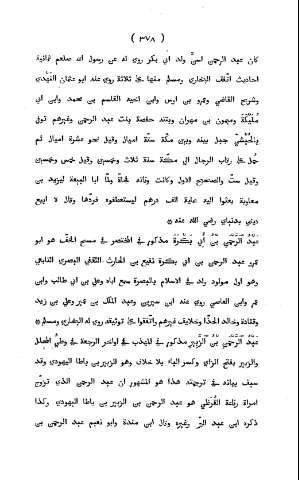 ( ٣٧٨ )
كان عبد الرحمن اسنّ ولد ابى بكر روى له عن رسول الله صلعم ثمانية
احاديث اتفق البخارى ومسلم منها على ثلاثة روى عنه ابو عثمان النهدى
وشريح القاضى وعمرو بن اوس وابن اخيه القاسم بن محمد وابن ابى
مُلَيْكَة وميمون بن مهران وبنته حفصة بنت عبد الرحمن وغيرهم توفى
بالحُبْشِىّ جبل بينه وبين مكّة ستّة اميال وقيل نحو عشرة اميال ثم
حُمل على رقاب الرجال الى مكّة سنة ثلاث وخمسين وقيل خمس وخمسين
وقيل ستّ والصحيح الاول وكانت وفاته فجأة ولمّا ابا البيعة ليزيد بن
معاوية بعثوا اليه بمائة الف درهم ليستعطفوه فردّها وقال لا ابيع
دينى بدنياى رضى الله عنه *
عبد الرحمن بن أبى بَكْرَة مذكور فى المختصر فى مسح الخفّ هو ابو
بحر عبد الرحمن بن ابى بكرة نفيع بن الحارث الثقفى البصرى التابعى
وهو اول مولود ولد فى الاسلام بالبصرة سمع اباه وعلى بن ابى طالب وابن
عمر وابن العاصى روى عنه ابن سيرين وعبد الملك بن عمير وعلى بن زيد
وقتادة وخالد الحذّا وخلائف غيرهم واتّفقوا على توثيقه روى له البخارى ومسلم *
عبد الرحمن بن الزَّبِير مذكور فى المهذب فى اواخر الرجعة فى وطىء المحلل
والزبير بفتح الزاى وكسر الباء بلا خلاف وهو الزبير بن باطا اليهودى وقد
سبق بيانه فى ترجمته هذا هو المشهور ان عبد الرحمن الذى تزوّج
امراة رفاعة القُرَظى هو عبد الرحمن بن الزبير بن باطا اليهودى وكذا
ذكره ابن عبد البرّ وغيره وقال ابن مندة وابو نعيم عبد الرحمن بن